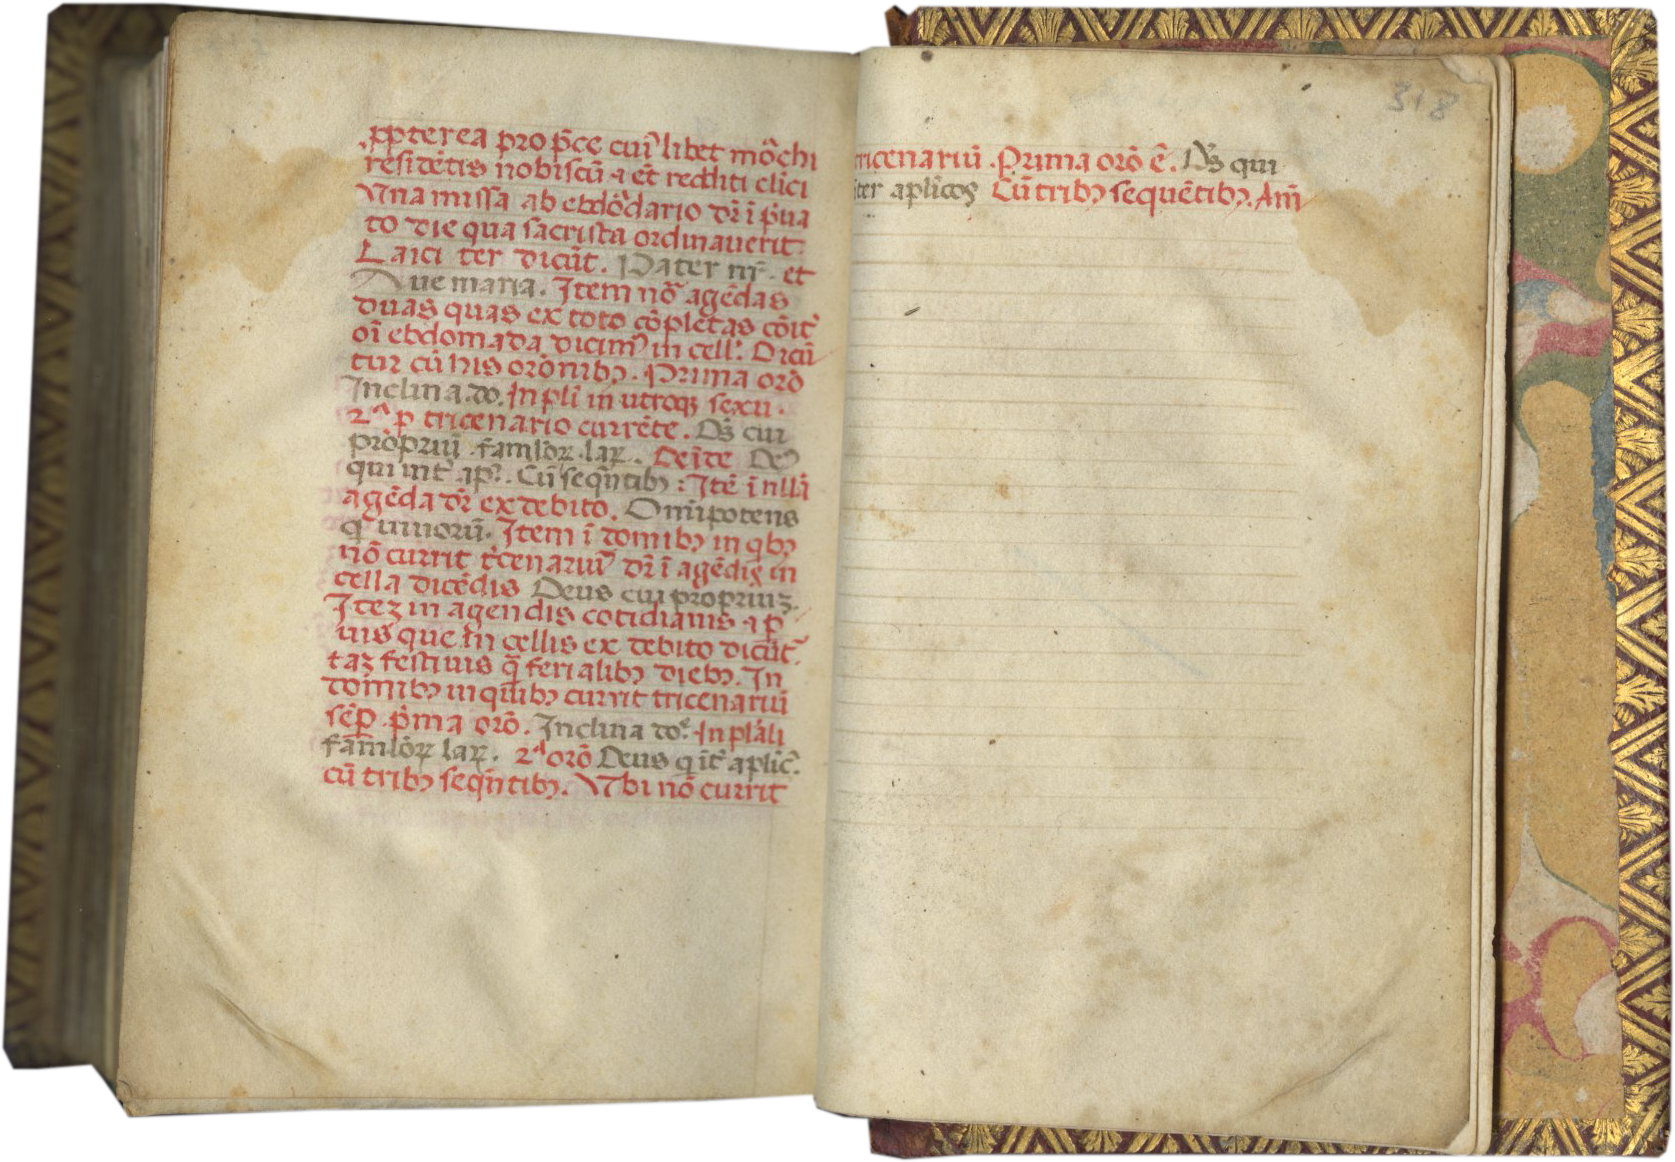 ꝓpterea pro p̄ce cuiꝰlibet mōchi
residētis nobiscū ⁊ et̄ redditi clīci
Vna missa ab ebdōdario dr̄ ī pͥua
to die qua sacrista ordinauerit.
Laici ter dicūt. Pater nr̄. et
Aue maria. Item nō agēdas
duas quas ex toto cōpletas cōit᷑
oī ebdomada dicimꝰ in cell'. Dicū
tur cū his orōnibꝫ. Prima orō
Inclina. do. In pli in utroqꝫ sexu.
2ª p tricenario currēte. Ds̄ cui
propriū. famlōꝝ. laꝝ. Deīde Deꝰ
qui int' ap'. Cū seqn̄tibꝫ : Itē ī nllā
agēda dr̄ ex debito. Om̄ipotens
q uiuorū. Item ī domibꝫ in qbꝫ
nō currit tͥcenariū dr̄ ī agēdis in
cella dicēdis Deus cui propriuꝫ.
Iteꝫ in agendis cotidianis ⁊ p
uis que in cellis ex debito dicūt᷑
taꝫ festiuis q̄ ferialibꝫ diebꝫ. In
domibꝫ in quibꝫ currit tricenariū
sēꝑ pͥma orō. Inclina do. In plāli
famlōꝝ laꝝ. 2ª orō Deus q īt' aplic'.
cū tribꝫ seqn̄tibꝫ. Vbi nō currit
318
tricenariū. Prima orō ē. Ds̄ qui
īter aplicos Cū tribꝫ sequētibꝫ. Am̄